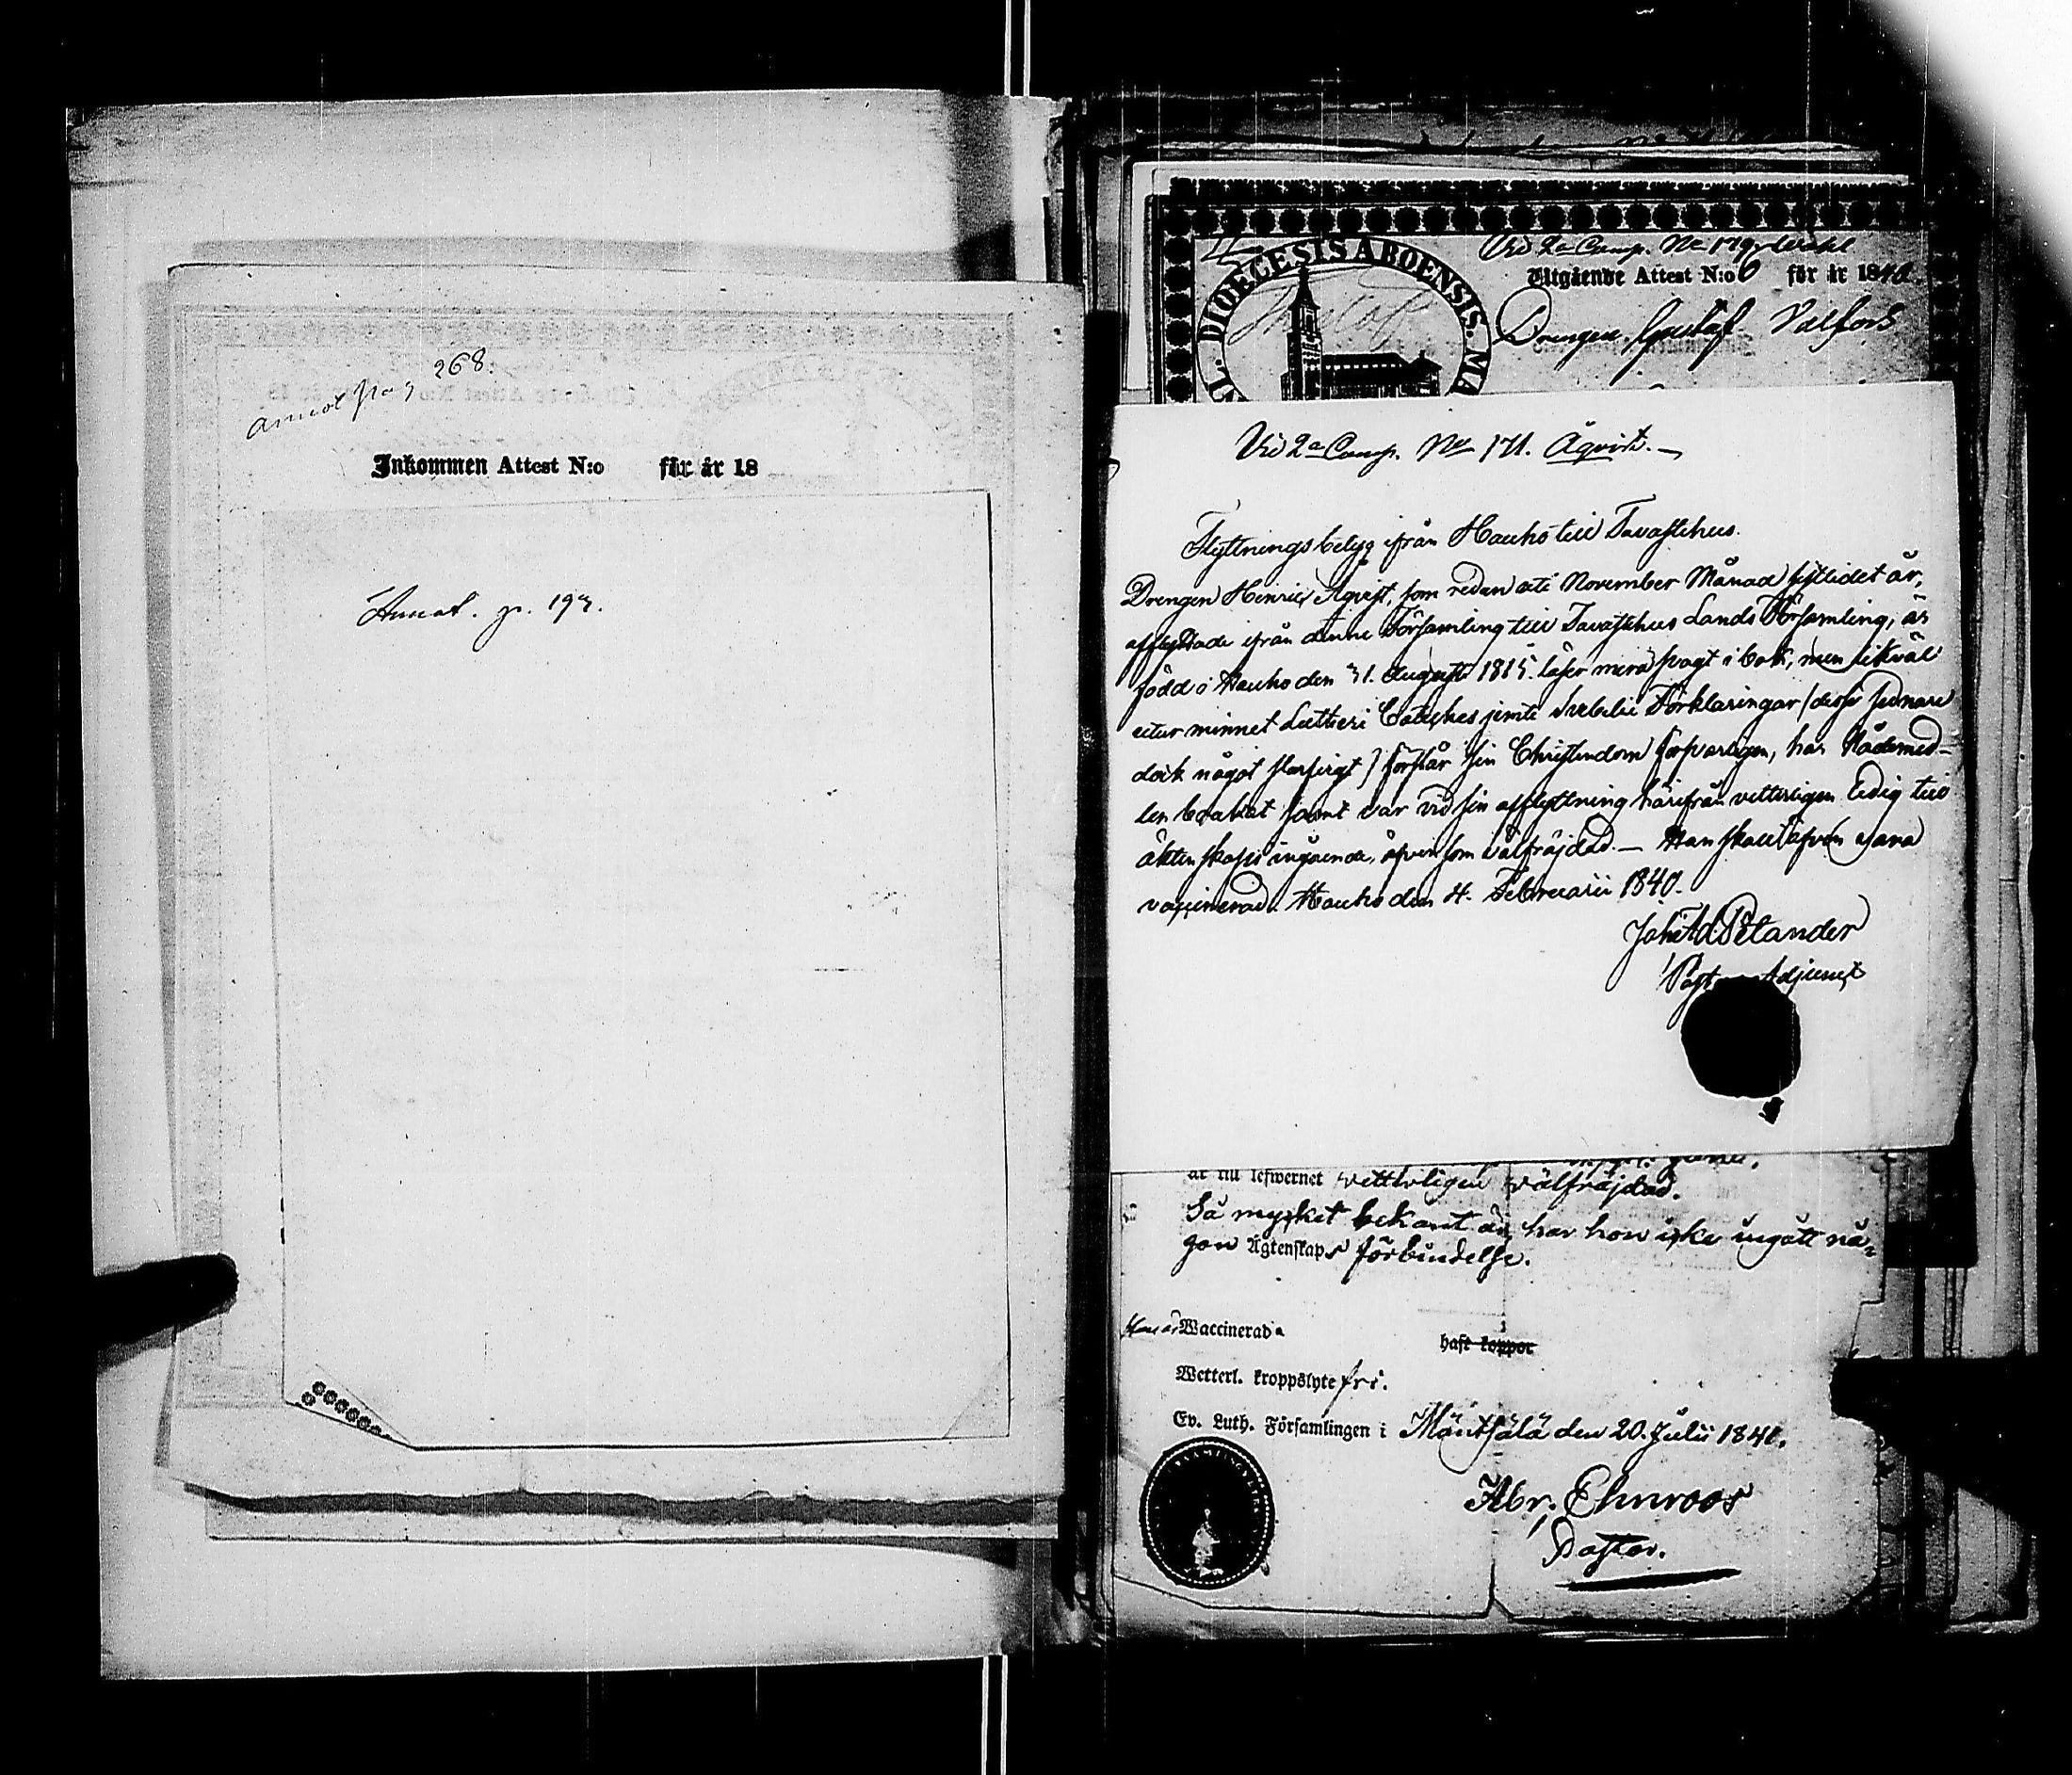 Annot pag 268.
Inkommen Attest N:o för år 18
Annot. p. 193.
DIOECESIS ABOENSIS. MA
Vid 2a Comp. No 179
Utgående Attest N:o 6 för år 1840.
Drengen Gustaf Valfors
Vid 2a Comp. No 171. Äqvist.
Flyttningsbetyg ifrån Hauho till Tavastehus.
Drengen Henric Äqvist, som redan uti November Månad sistlidet år,
afflyttade ifrån denne Församling till Tavastehus Lands Församling, är
född i Hauho den 31. Augusti 1815. läser mera svagt i bok, men likväl
utur minnet Lutheri Cateches jemte Svebelii Förklaringar (desse sednare
dock något) förstår sin Christendom försvarligen, har Nådemed-
len brukat samt var vid sin afflyttning härifrån vetterligen ledig till
äktenskaps ingående, äfvensom välfräjdad. — Han skall äfven vara
vaccinerad. Hauho den 4. Februarii 1840.
Joh: Ad. Pelander
Past. Adjunct
är till lefwernet vetterligen välfräjdad.
Så mycket bekant är, har hon icke ingått nå=
gon Ägtenskaps förbindelse.
Hon är Waccinerad. haft koppor
Wetterl. kroppslyte fri.
Ev. Luth. Församlingen i Mäntsälä den 20. Julii 1840.
Abr. Ehnroos
Pastor.